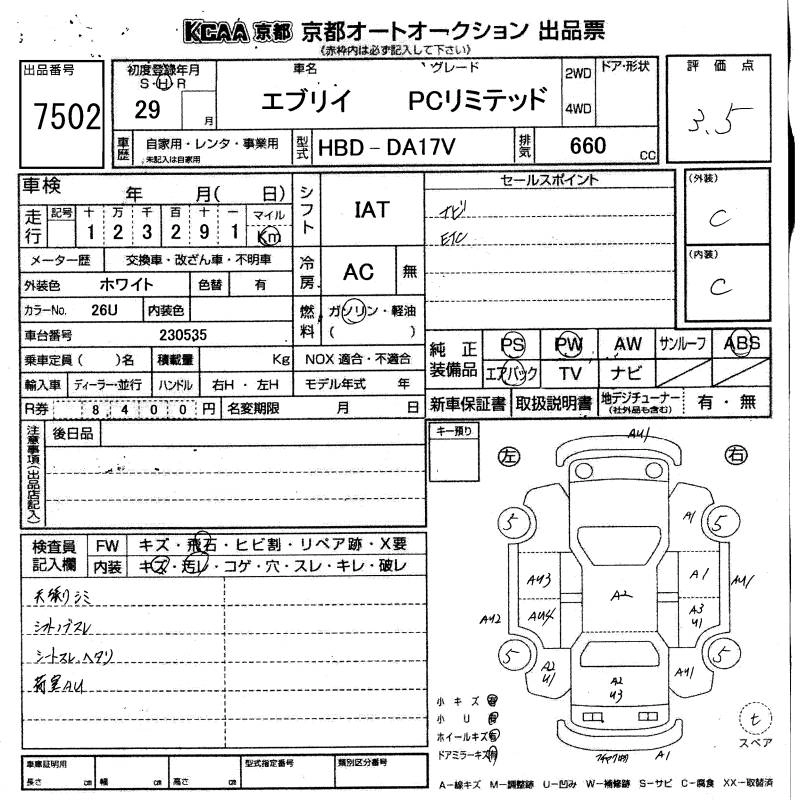 KCAA京都 京都オートオークション 出品票
《赤枠内は必ず記入して下さい》
出品番号
7502
初度登録年月
S・H・R
29
月
車名
グレード
エブリイ PCリミテッド
2WD
4WD
ドア・形状
評価点
3.5
車歴
自家用・レンタ・事業用
未記入は自家用
型式
HBD-DA17V
排気
660
CC
車検
年 月( 日)
走行
記号
十 万 千 百 十 一
1 2 3 2 9 1
マイル
Km
メーター歴
交換車・改ざん車・不明車
外装色
ホワイト
色替
有
カラーNo.
26U
内装色
車台番号
230535
乗車定員( )名
積載量
Kg
NOX 適合・不適合
輸入車
ディーラー・並行
ハンドル
右H・左H
モデル年式 年
R券
8400円
名変期限
月 日
シフト
IAT
冷房
AC
無
燃料
ガソリン・軽油
( )
セールスポイント
ナビ
ETC
(外装)
C
(内装)
C
純正装備品
PS
PW
AW
サンルーフ
ABS
エアバック
TV
ナビ
新車保証書
取扱説明書
地デジチューナー
(社外品も含む)
有・無
注意事項(出品店記入)
後日品
キー預り
左
右
検査員記入欄
FW
キズ・飛石・ヒビ割・リペア跡・X要
内装
キズ・汚レ・コゲ・穴・スレ・キレ・破レ
天張りシミ
シフトノブスレ
シートスレ、ヘタリ
荷室AU
AU1
5
5
A1
AU3
A1
AU1
A2
AU2
AU4
A3
U1
5
5
A2
U1
A2
U3
AU1
A1
小キズ 有
小U 有
ホイールキズ 有
ドアミラーキズ 有
t
スペア
車庫証明用
長さ cm
幅 cm
高さ cm
型式指定番号
類別区分番号
A-線キズ M-調整跡 U-凹み W-補修跡 S-サビ C-腐食 XX-取替済